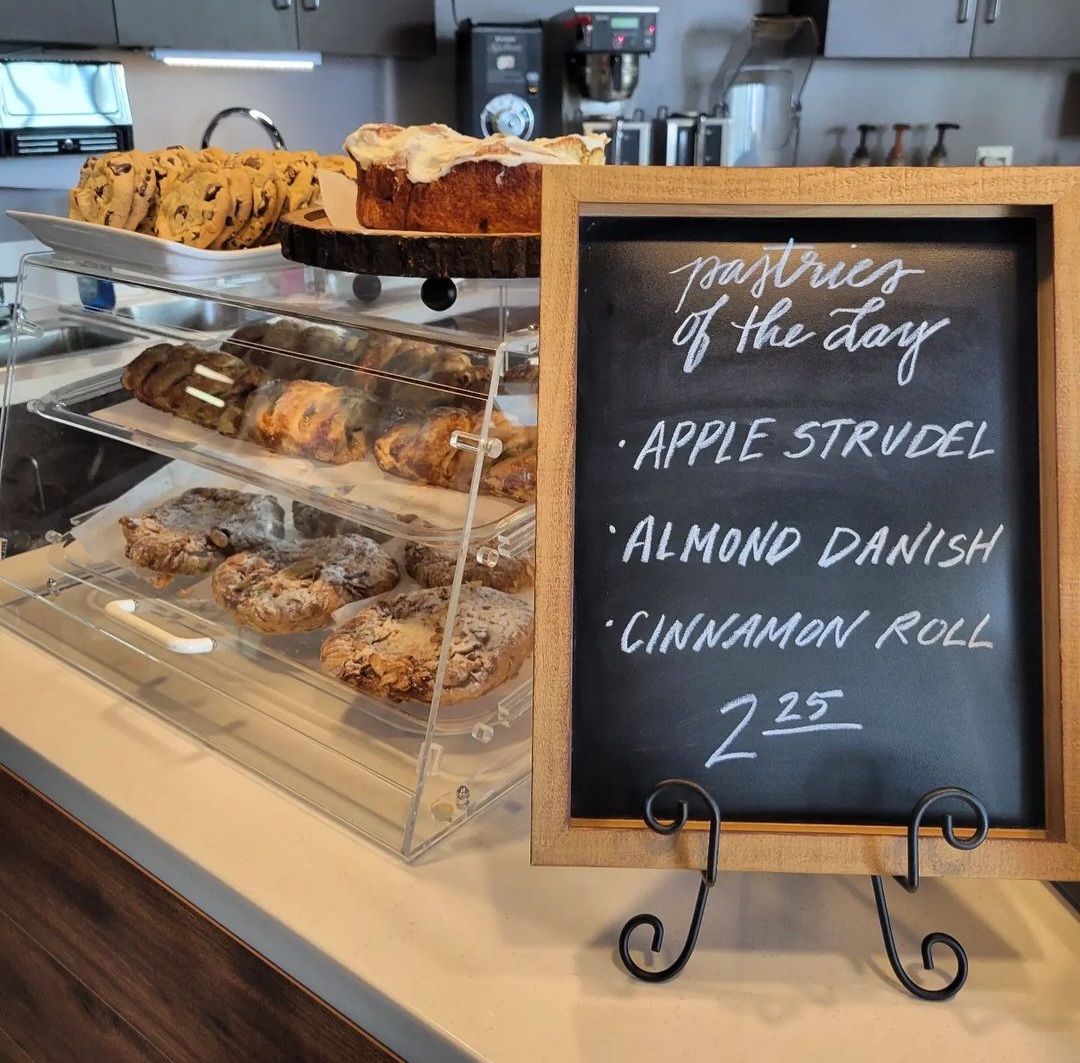 pastries
of the day
· APPLE STRUDEL
· ALMOND DANISH
· CINNAMON ROLL
2 25